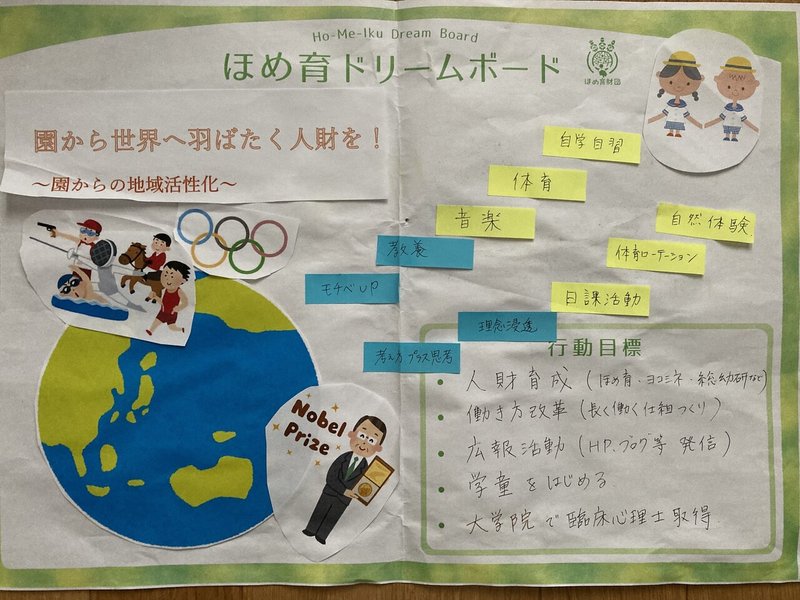 Ho-Me-Iku Dream Board
ほめ育ドリームボード
ほめ育財団
園から世界へ羽ばたく人財を！
～園からの地域活性化～
自学自習
体育
音楽
自然体験
教養
体育ローテーション
モチベUP
日課活動
理念浸透
考え方プラス思考
Nobel
Prize
行動目標
• 人財育成（ほめ育・ヨコミネ・総幼研など）
• 働き方改革（長く働く仕組つくり）
• 広報活動（HP、ブログ等 発信）
• 学童をはじめる
• 大学院で臨床心理士取得